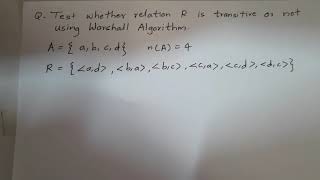 Q. Test whether relation R is transitive or not
using Warshall Algorithm.
A = { a, b, c, d} n(A) = 4
R = { <a,d> , <b,a> , <b,c> , <c,a> , <c,d> , <d,c> }